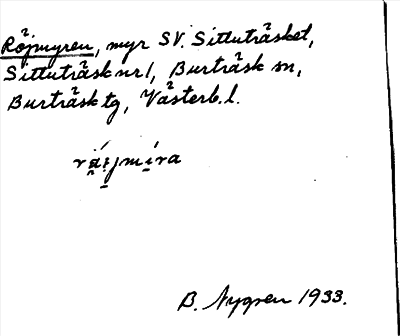 Röjmyren, myr SV. Sittuträsket,
Sittuträsk nr 1, Burträsk sn,
Burträsk tg, Västerb. l.
B. Nygren 1933.